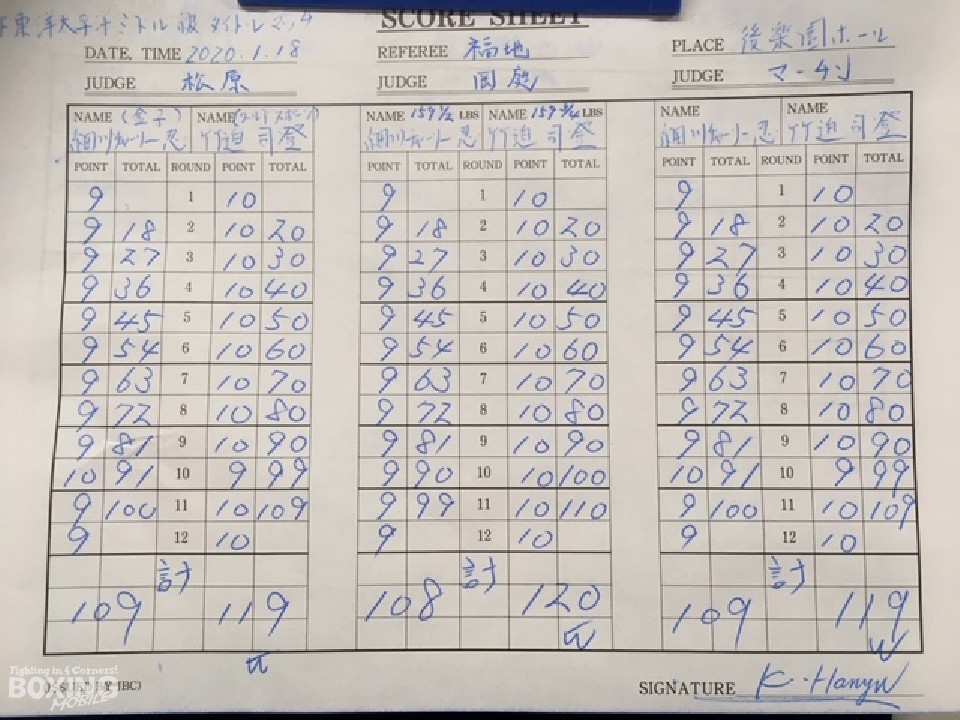 東洋太平洋ミドル級タイトルマッチ
SCORE SHEET
DATE, TIME 2020.1.18 REFEREE 福地 PLACE 後楽園ホール
JUDGE 松原 JUDGE 岡庭 JUDGE マーチン
NAME (金子) NAME (ワールドスポーツ) NAME 159 1/2 LBS NAME 159 3/4 LBS NAME NAME
細川チャーリー忍 竹迫司登 細川チャーリー忍 竹迫司登 細川チャーリー忍 竹迫司登
POINT TOTAL ROUND POINT TOTAL POINT TOTAL ROUND POINT TOTAL POINT TOTAL ROUND POINT TOTAL
9 1 10 9 1 10 9 1 10
9 18 2 10 20 9 18 2 10 20 9 18 2 10 20
9 27 3 10 30 9 27 3 10 30 9 27 3 10 30
9 36 4 10 40 9 36 4 10 40 9 36 4 10 40
9 45 5 10 50 9 45 5 10 50 9 45 5 10 50
9 54 6 10 60 9 54 6 10 60 9 54 6 10 60
9 63 7 10 70 9 63 7 10 70 9 63 7 10 70
9 72 8 10 80 9 72 8 10 80 9 72 8 10 80
9 81 9 10 90 9 81 9 10 90 9 81 9 10 90
10 91 10 9 99 9 90 10 10 100 10 91 10 9 99
9 100 11 10 109 9 99 11 10 110 9 100 11 10 109
9 12 10 9 12 10 9 12 10
計 計 計
109 119 108 120 109 119
W W W
Fighting in 4 Corners!
BOXING
MOBILE
(ISSUED BY JBC) SIGNATURE K. Hanyu